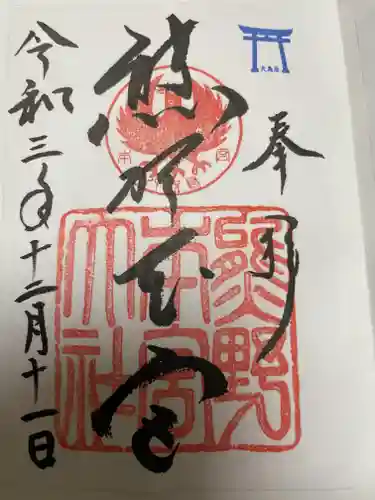 奉拝
熊野本宮
熊野
本宮
大社
令和三年十二月十一日